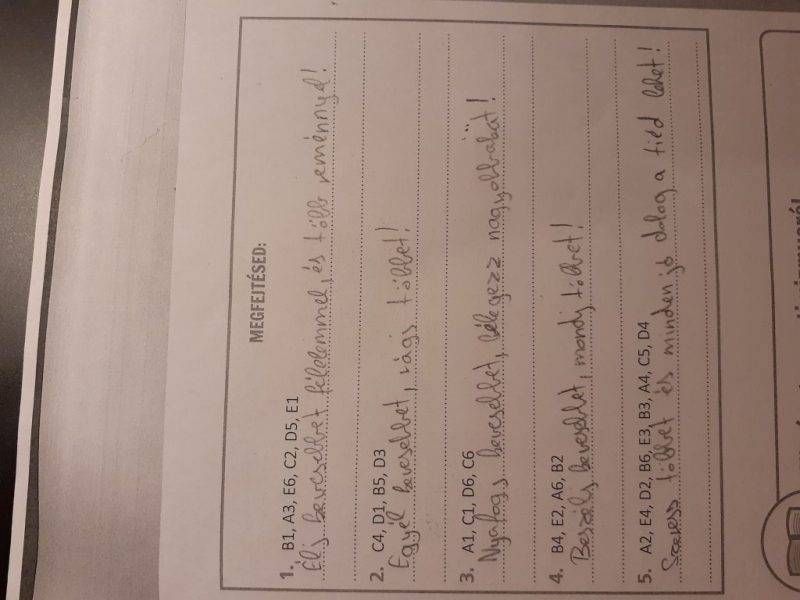 MEGFEJTÉSED:
1. B1, A3, E6, C2, D5, E1
Élj kevesebbet félelemmel, és több reménnyel!
2. C4, D1, B5, D3
Egyél kevesebbet, rágj többet!
3. A1, C1, D6, C6
Nyafogj kevesebbet, lélegezz nagyobbakat!
4. B4, E2, A6, B2
Beszélj kevesebbet, mondj többet!
5. A2, E4, D2, B6, E3, B3, A4, C5, D4
Szeress többet és minden jó dolog a tiéd lehet!